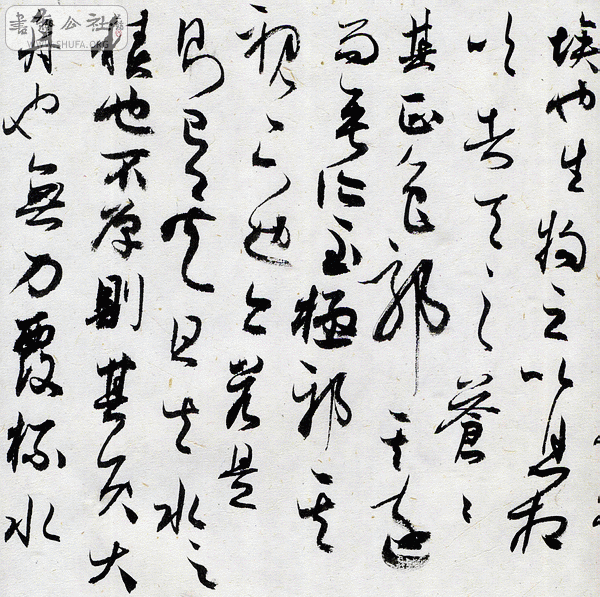 埃也生物之以息相
吹者天之蒼〻
其正色邪其遠
而無所至極邪其
視下也亦若是
則已矣且夫水之
積也不厚則其負大
舟也無力覆杯水
書法公社
WWW.SHUFA.ORG